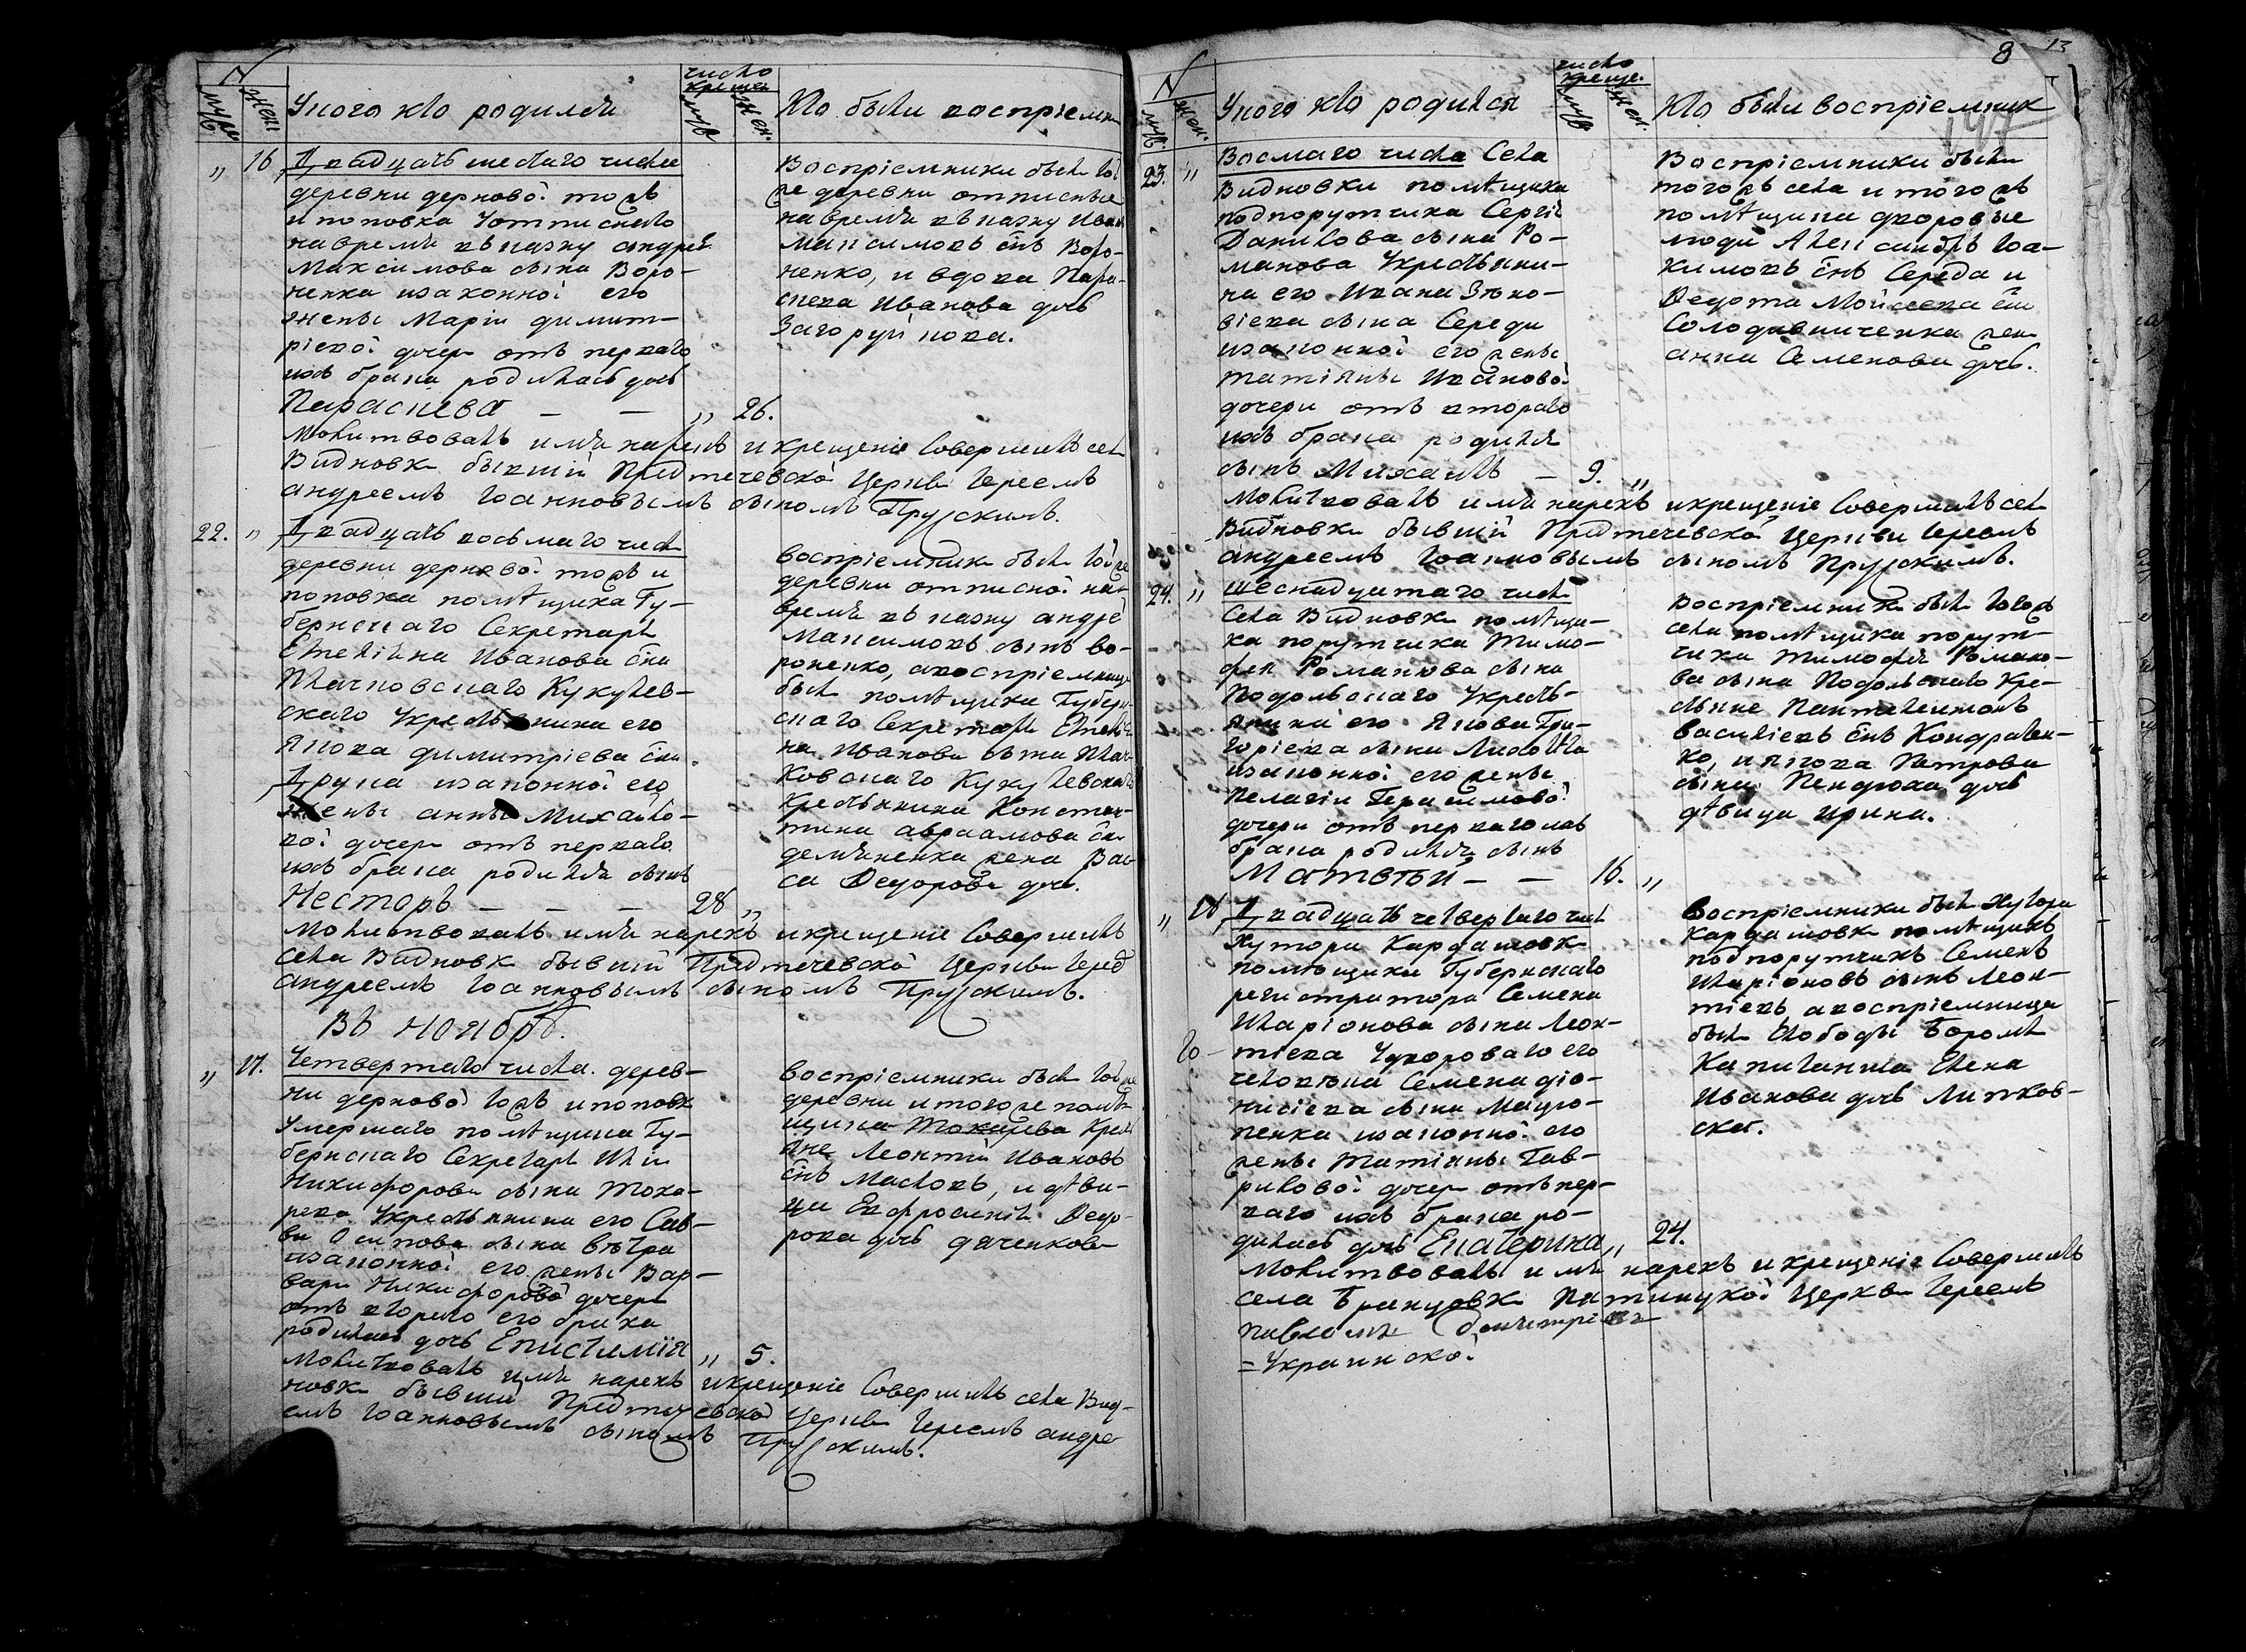 N
муж жен
Уного кто родился
число
креще
муж жен.
Кто были восприемни
" 16 Двадцать шестаго числа
деревни дерновой тожъ
и поповка Уотписнаго
навремя въ казну андрея
Максимова сына Воро-
ненка изаконной его
жены Маріи димит-
ріевой дочери отъ перваго
ихъ брака родилась дочь
Параскева — — " 26.
Восприемники были той
же деревни отписные
навремя въ казну Иван
Максимовъ снъ Воро-
ненко, и вдова Пара-
скева Иванова дочь
Загоруйкова.
Молитвовалъ имя нарекъ и крещеніе Совершилъ села
Видновки бывшій Предтечевской Церкви Іереемъ
андреемъ Іоанновымъ сыномъ Прускимъ.
22. " Двадцать восьмаго числа
деревни дерновой тожъ и
поповка помѣщика Гу-
бернскаго Секретаря
Емелiяна Иванова сна
Плачковскаго Кукулев-
скаго Укрестьянина его
Якова димитріева сна
Друка изаконной его
жены анны Михайло-
вой дочери отъ перваго
ихъ брака родился сынъ
Несторъ — — — 28 "
восприемники были тойже
деревни отписной на-
время въ казну андре
Максимовъ сынъ Во-
роненко, авосприемница
была помѣщика Губерн-
скаго Секретаря Емелiя
на Иванова сына Плач-
ковскаго Кукулевскаго
Крестьянина Констан-
тина авраамова сна
демяненка жена Вас-
са Ѳедорова дочь.
Молитвовалъ имя нарекъ икрещеніе Совершилъ
села Видновки бывшій Предтечевской Церкви Іерей
андреемъ Іоанновымъ сыномъ Прускимъ.
Въ Ноябрѣ.
" 17. Четвертаго числа. дерев-
ни дерновой тожъ ипоповк
Умершаго помѣщика Гу-
бернскаго Секретаря Ильи
Никифорова сына Тока-
рева Укрестьянина его Сав-
вы Осипова сына Вѣтра
изаконной его жены Вар-
вары Никифоровой дочери
отъ втораго его брака
родилась дочь Епистимія " 5.
восприемники были тойже
деревни итогоже помѣ-
щика Токарева Крестья
яне Леонтій Ивановъ
снъ Масловъ, и дѣви-
ца Евфросинія Ѳедо-
рова дочь дяченкова
Молитвовалъ имя нарекъ икрещеніе Совершилъ села Вид-
новки бывшій Предтечевской Церкви Іереемъ андре
емъ Іоанновымъ сыномъ Прускимъ.
8 13
N
муж. жен.
Уного кто родился
число
креще.
муж жен.
Кто были восприемник
23. " Восмаго числа Села
Видновки помѣщика
подпорутчика Сергія
Данилова сына Ро-
манова Укрестьяни-
на его Ивана Зѣно-
віева сына Середи
изаконной его жены
татіяны Ивановой
дочери отъ втораго
ихъ брака родился
сынъ Михаилъ — 9. "
Восприемники были
тогожъ села и тогожъ
помѣщика дворовые
люди Александръ Іоа-
кимовъ снъ Середа и
Ѳедота Мойсеева сна
Солодовниченка жен
анна Семенова дочь.
Молитвовалъ имя нарекъ икрещеніе Совершилъ села
Видновки бывшій Предтечевской Церкви Іереемъ
андреемъ Іоанновымъ сыномъ Прускимъ.
24. " Шеснадцатаго числа
Села Видновки помѣщи-
ка порутчика Тимо-
фея Романова сына
Подольскаго Укресть-
янина его Якова Гри-
горіева сына
изаконной его жены
Пелагіи Герасимовой
дочери отъ перваго ихъ
брака родился сынъ
Матвѣй — — 16. "
Восприемники были тогожъ
села помѣщика порут-
чика тимофея Романо-
ва сына Подольскаго Кре-
стьяне Пантелеимонъ
Василіевъ снъ Кондратен-
ко, и Якова Петрова
сына Пендюха дочь
дѣвица ирина.
" 18 Двадцать четвертаго числа
Хутора Кардашовки
помѣщика Губернскаго
регистратора Семена
Иларіонова сына Леон-
тіева Удвороваго его
человѣка Семена діо-
нисіева сына Мацю-
пенка изаконной его
жены татіяны Гав-
риловой дочери отъ пер-
ваго ихъ брака ро-
дилась дочь Екатерина " 24.
Восприемники были Хутора
Кардашовки помѣщикъ
подпорутчикъ Семенъ
Иларіоновъ сынъ Леон-
тіевъ авосприемница
была Слободы Боромли
Капитанша Елена
Иванова дочь Литков-
ска.
Молитвовалъ имя нарекъ икрещеніе Совершилъ
села Бранцовки Пятницкой Церкви Іереемъ
павломъ
=Украинской